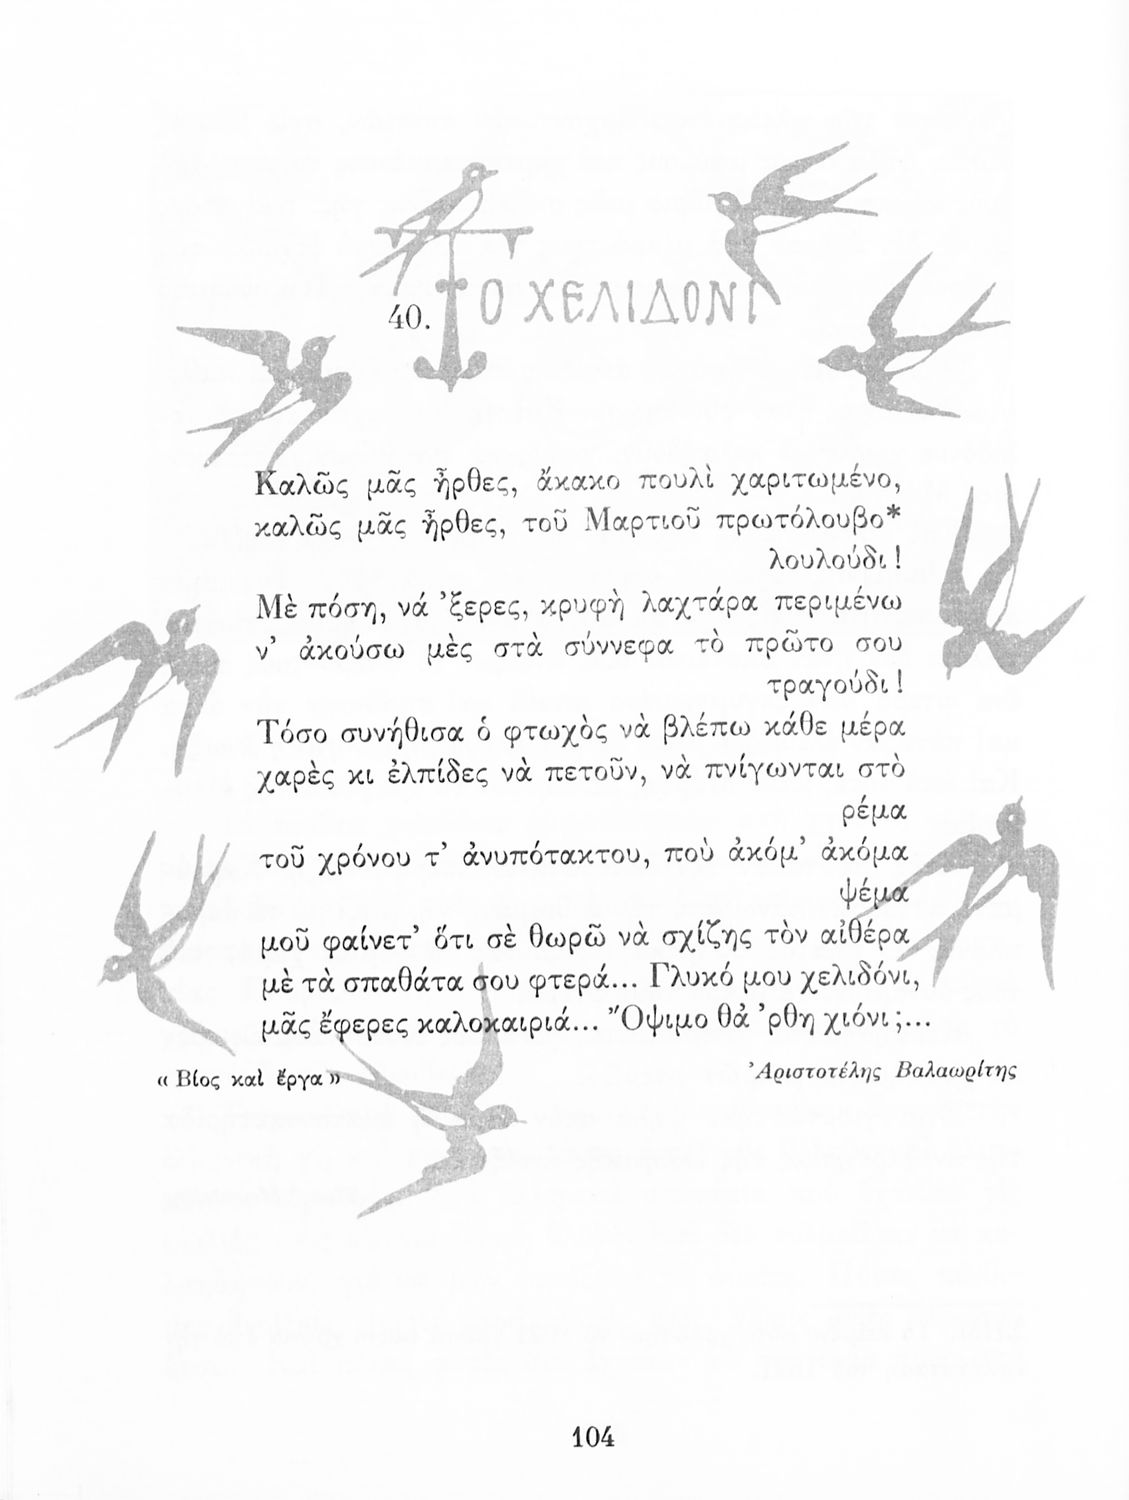 40. ΤΟ ΧΕΛΙΔΟΝΙ
Καλῶς μᾶς ἦρθες, ἄκακο πουλὶ χαριτωμένο,
καλῶς μᾶς ἦρθες, τοῦ Μαρτιοῦ πρωτόλουβο*
λουλούδι!
Μὲ πόση, νά ’ξερες, κρυφὴ λαχτάρα περιμένω
ν’ ἀκούσω μὲς στὰ σύννεφα τὸ πρῶτο σου
τραγούδι!
Τόσο συνήθισα ὁ φτωχὸς νὰ βλέπω κάθε μέρα
χαρὲς κι ἐλπίδες νὰ πετοῦν, νὰ πνίγωνται στὸ
ρέμα
τοῦ χρόνου τ’ ἀνυπότακτου, ποὺ ἀκόμ’ ἀκόμα
ψέμα
μοῦ φαίνετ’ ὅτι σὲ θωρῶ νὰ σχίζης τὸν αἰθέρα
μὲ τὰ σπαθάτα σου φτερά... Γλυκό μου χελιδόνι,
μᾶς ἔφερες καλοκαιριά... Ὄψιμο θἀ ’ρθη χιόνι;...
« Βίος καὶ ἔργα »
Ἀριστοτέλης Βαλαωρίτης
104